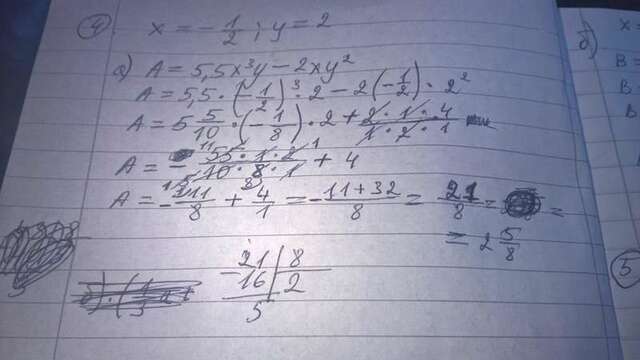 4 x = -1/2; y = 2
а) A = 5,5x³y - 2xy²
A = 5,5 · (-1/2)³ · 2 - 2(-1/2) · 2²
A = 5 5/10 · (-1/8) · 2 + 2·1·4/1·2·1
A = - 55·1·2/10·8·1 + 4
A = - 11/8 + 4/1 = - 11+32/8 = 21/8 =
= 2 5/8
21 | 8
-16 | 2
5
б)
x
B =
B
B
5